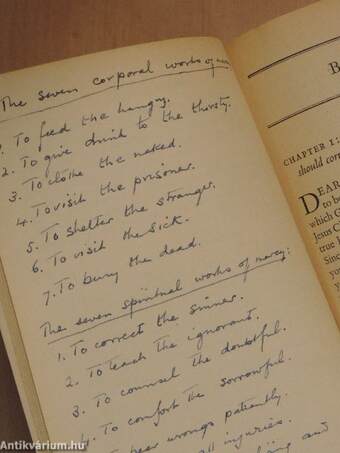 The seven corporal works of mercy
1. To feed the hungry.
2. To give drink to the thirsty.
3. To clothe the naked.
4. To visit the prisoner.
5. To shelter the stranger.
6. To visit the sick.
7. To bury the dead.
The seven spiritual works of mercy:
1. To correct the sinner.
2. To teach the ignorant.
3. To counsel the doubtful.
4. To comfort the sorrowful.
bear wrongs patiently.
all injuries.
and
B
CHAPTER 1:
should cor
DEAR
to b
which G
Jesus C
true
Sinc
Antikvárium.hu